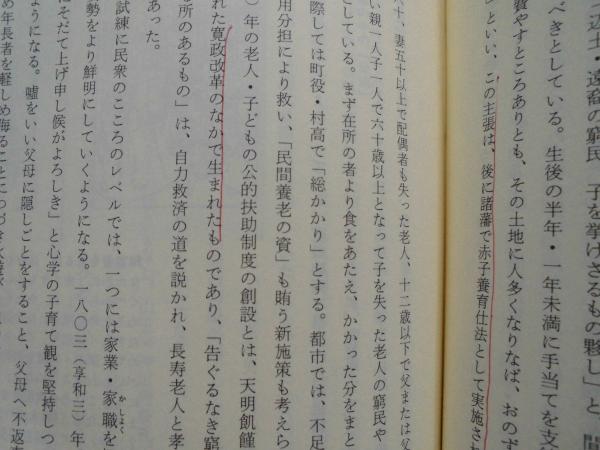 辺土・遠裔の民　子を挙げざるもの夥し」と、間
べきとしている。生後の半年・一年未満に手当てを支
費やすところありとも、その土地に人多くなりなば、おのず
」といい、この主張は、後に諸藩で赤子養育仕法として実施され
六十、妻五十以上で配偶者も失った老人、十二歳以下で父または父
い親一人子一人で六十歳以上となって子を失った老人の窮民や
としている。まず在所の者より食をあたえ、かかった分をまと
際しては町役・村高で「総かかり」とする。都市では、不足
用分担により救い、「民間養老の資」も賄う新施策も考えら
）年の老人・子どもの公的扶助制度の創設とは、天明飢饉
れた寛政改革のなかで生まれたものであり、「告ぐるなき窮
る所のあるもの」は、自力救済の道を説かれ、長寿老人と孝
あった。
試練に民衆のこころのレベルでは、一つには家業・家職を
かしょく
勢をより鮮明にしていくようになる。一八〇三（享和三）年
にそだて上げ申し候がよろしき」と心学の子育て観を堅持しつ
ようになる。嘘をいい父母に隠しごとをすること、父母へ不返事
め年長者を軽しめ侮ることにつづき